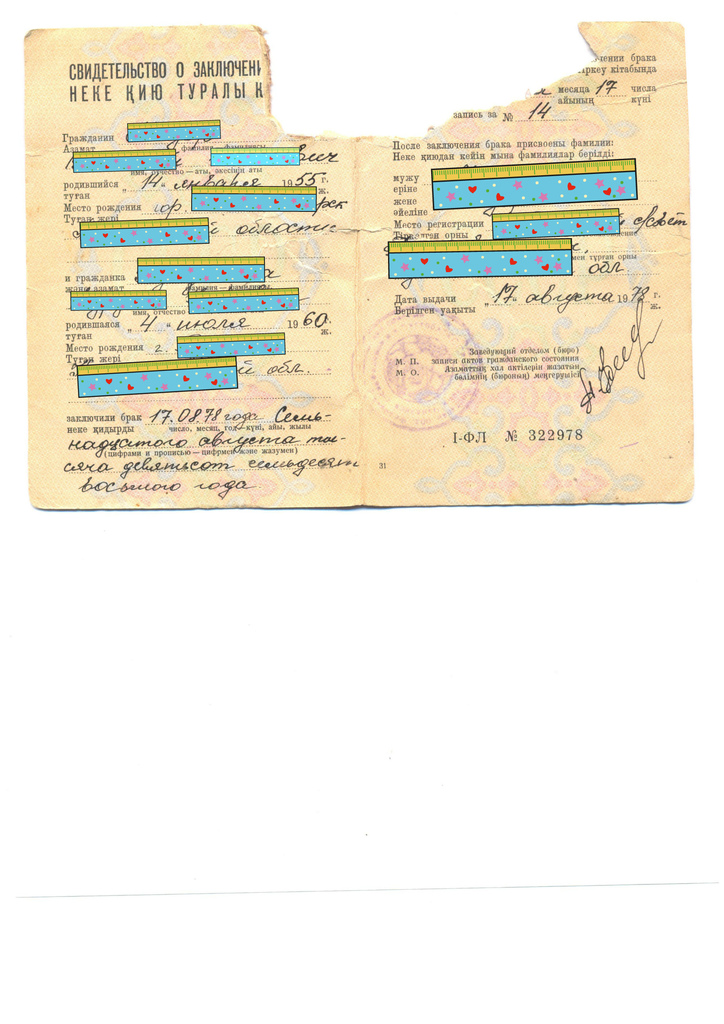 СВИДЕТЕЛЬСТВО О ЗАКЛЮЧЕНИ
НЕКЕ ҚИЮ ТУРАЛЫ К
Гражданин
Азамат
фамилия — фамилиясы
вич
имя, отчество — аты, әкесінің аты
родившийся „14“ января 1955 г.
туған ж.
Место рождения гор.
Туған жері
области
и гражданка
және азамат
фамилия — фамилиясы
имя, отчество
родившаяся „4“ июля 1960 г.
туған ж.
Место рождения г.
Туған жері
й обл.
заключили брак 17.08.78 года Семь-
неке қидырды число, месяц, год — күні, айы, жылы
надцатого августа ты-
(цифрами и прописью — цифрмен және жазумен)
сяча девятьсот семьдесят
восьмого года
чении брака
іркеу кітабында
месяца 17 числа
айының күні
запись за № 14
После заключения брака присвоены фамилии:
Неке қиюдан кейін мына фамилиялар берілді:
мужу
еріне
жене
әйеліне
Место регистрации
Тіркелген орны
обл
Дата выдачи „17“ августа 1978 г.
Берілген уақыты ж.
Заведующий отделом (бюро)
М. П. записи актов гражданского состояния
М. О. Азаматтық хал актілерін жазатын
бөлімнің (бюроның) меңгерушісі
I-ФЛ № 322978
31